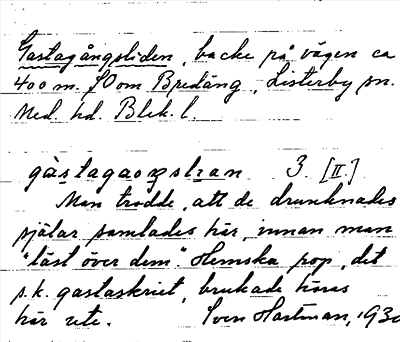 Gastagångsliden, backe på vägen ca
400 m. SO om Bredäng, Listerby sn.
Med. hd. Blek. l.
gàstagaoŋslıan 3 [II.]
Man trodde, att de drunknades
själar samlades här, innan man
"läst över dem". Hemska rop, det
s.k. gastaskriet, brukade höras
här ute. Sven Hartman, 1930